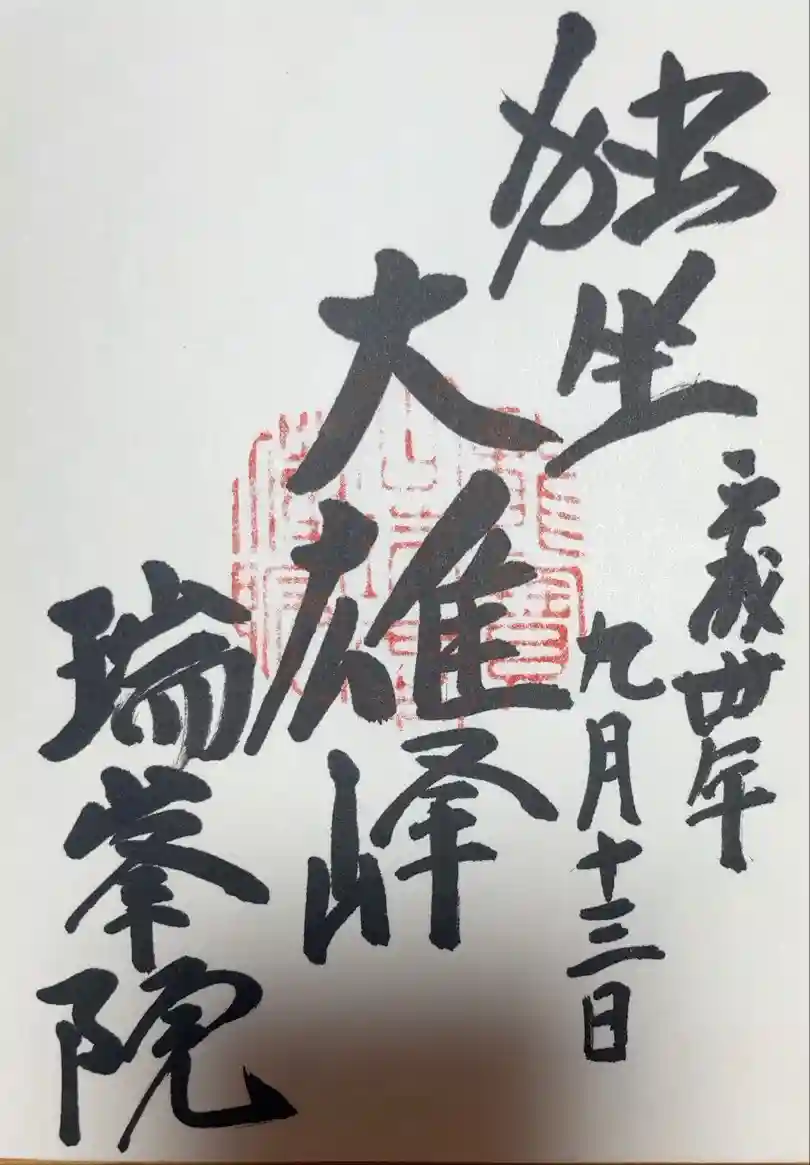 独坐
大雄峰
平成丗年
九月十三日
瑞峯院